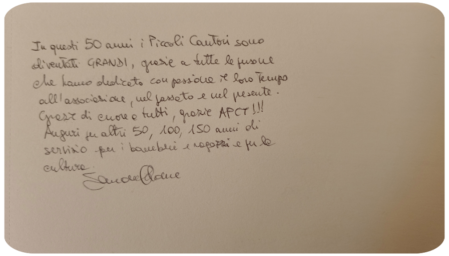 In questi 50 anni i Piccoli Cantori sono
diventati GRANDI, grazie a tutte le persone
che hanno dedicato con passione il loro tempo
all'associazione, nel passato e nel presente.
Grazie di cuore a tutti, grazie APCT!!!
Auguri per altri 50, 100, 150 anni di
servizio per i bambini e ragazzi e per la
cultura.